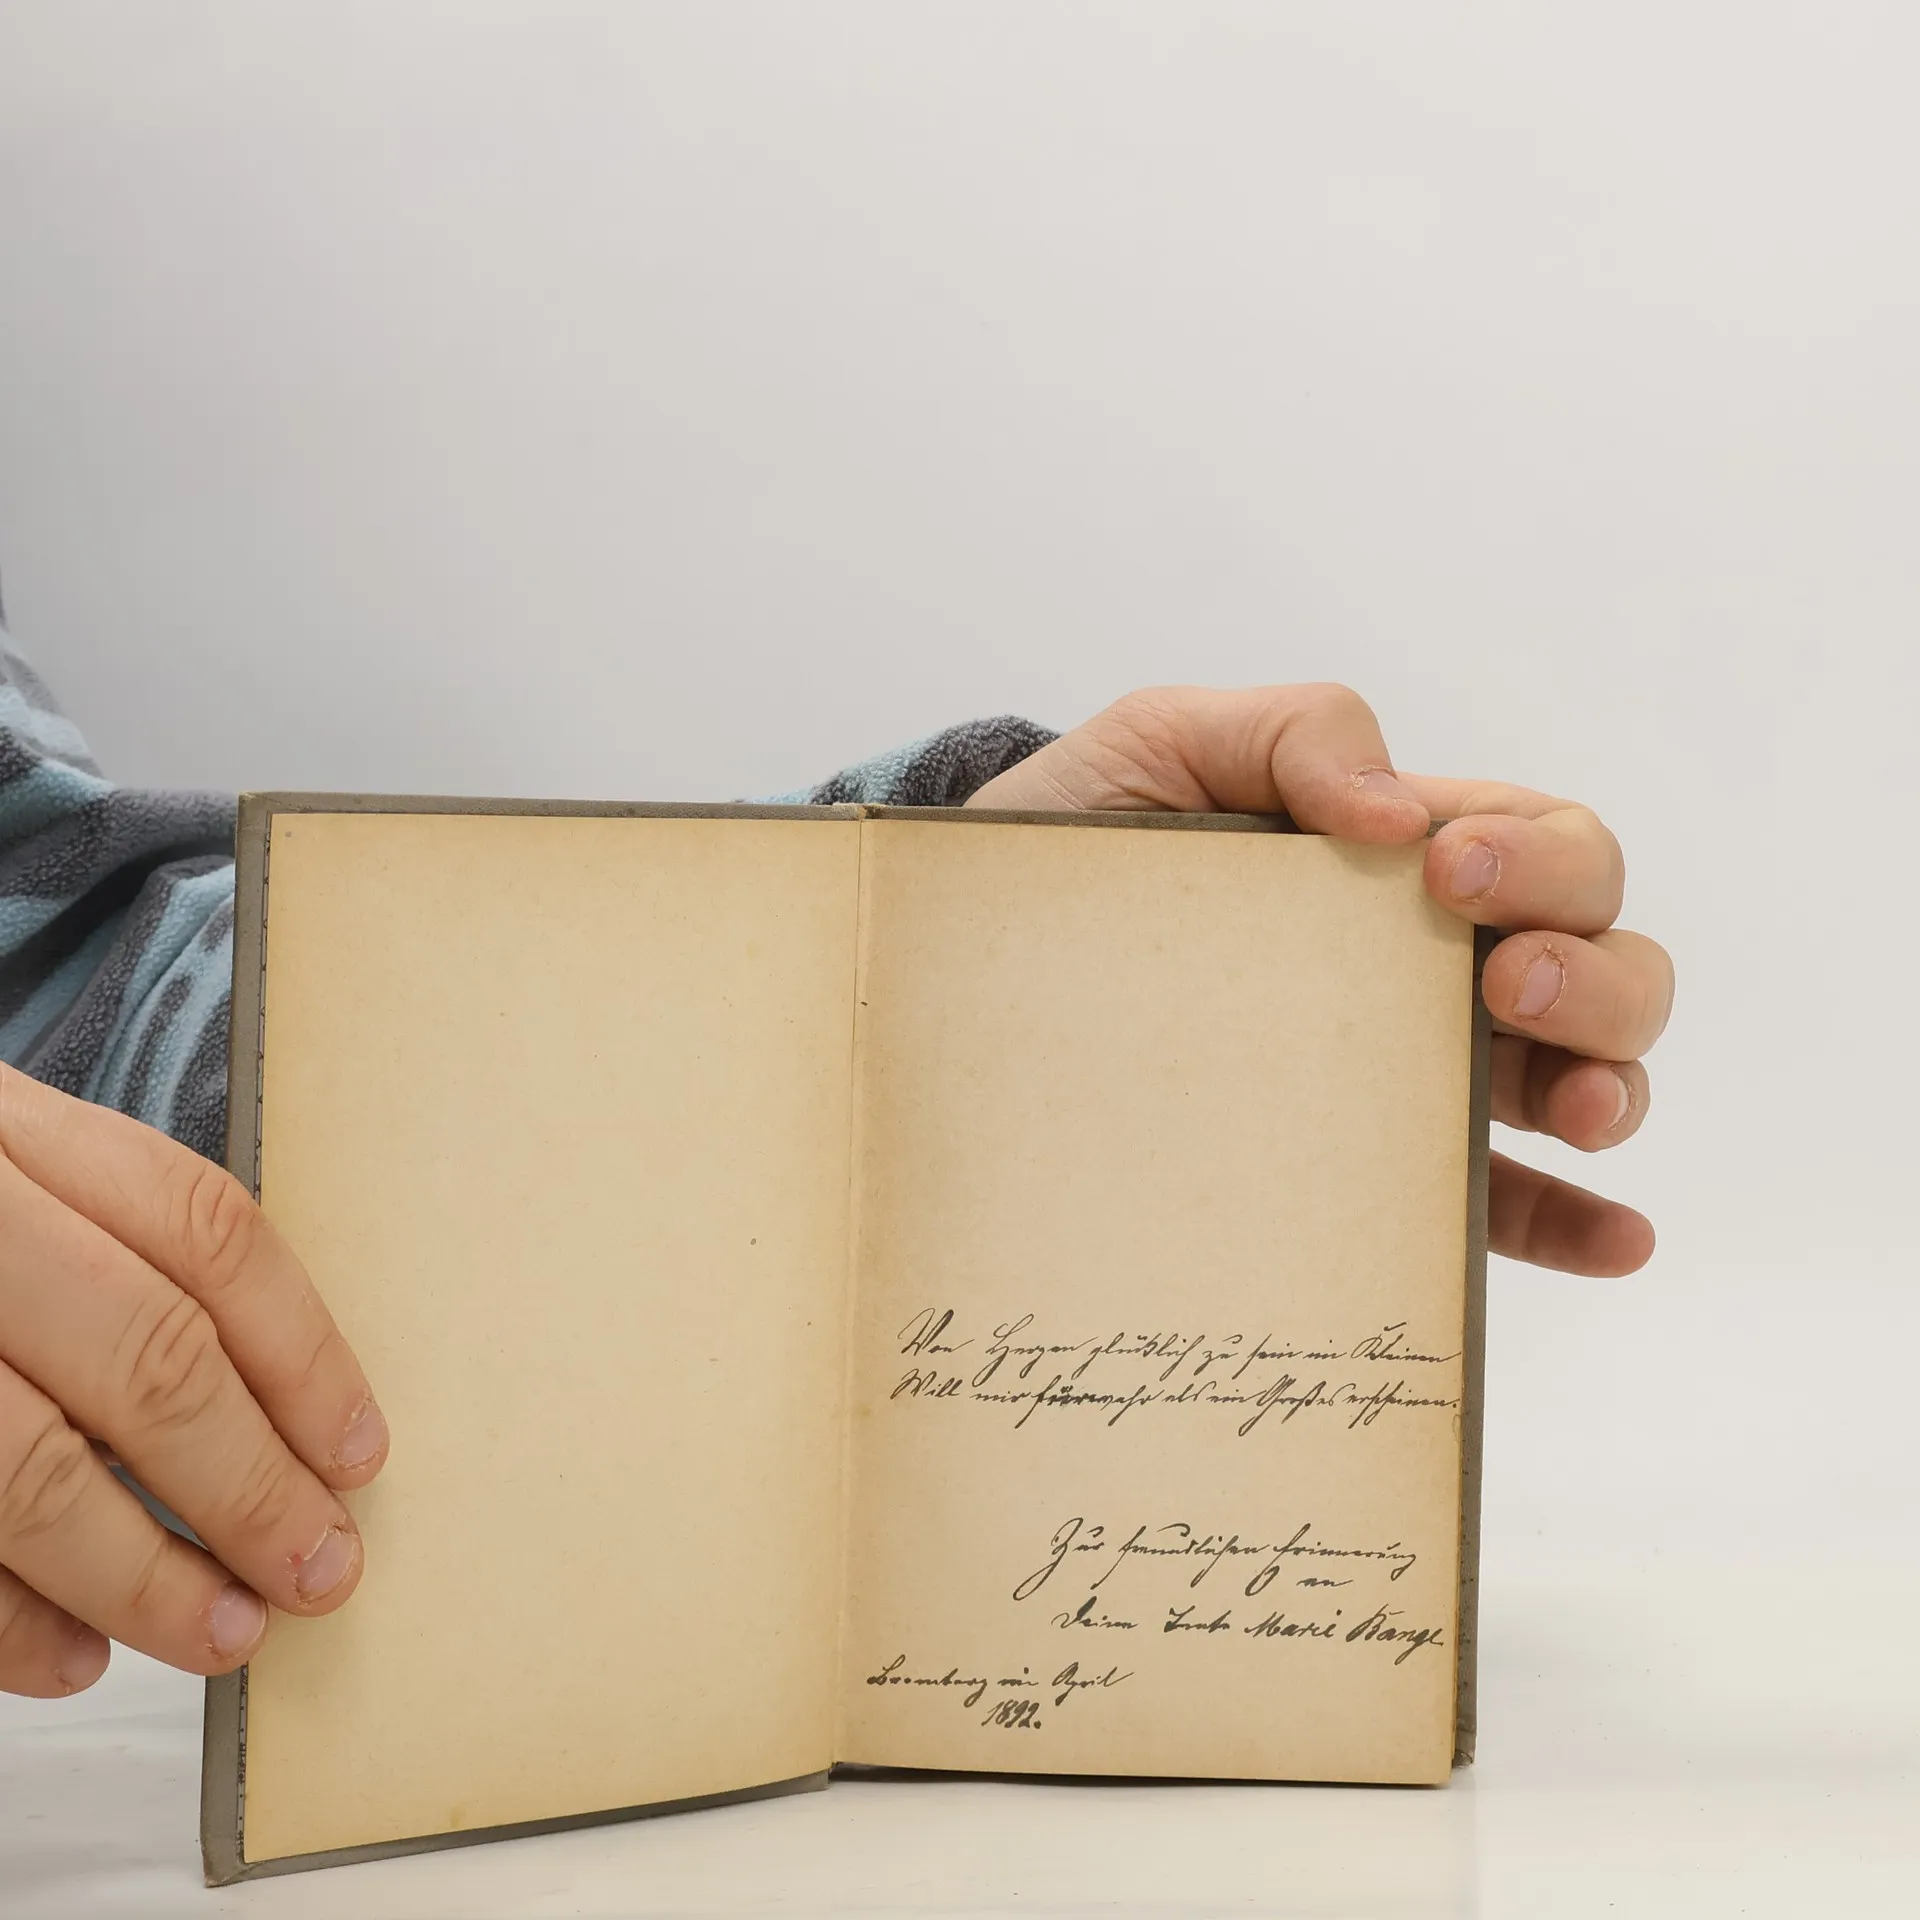 Von Herzen glücklich zu sein im Kleinen
Will mir fürwahr als ein Großes erscheinen.
Zur freundlichen Erinnerung
an
Deine Tante Marie
Bromberg im April
1892.